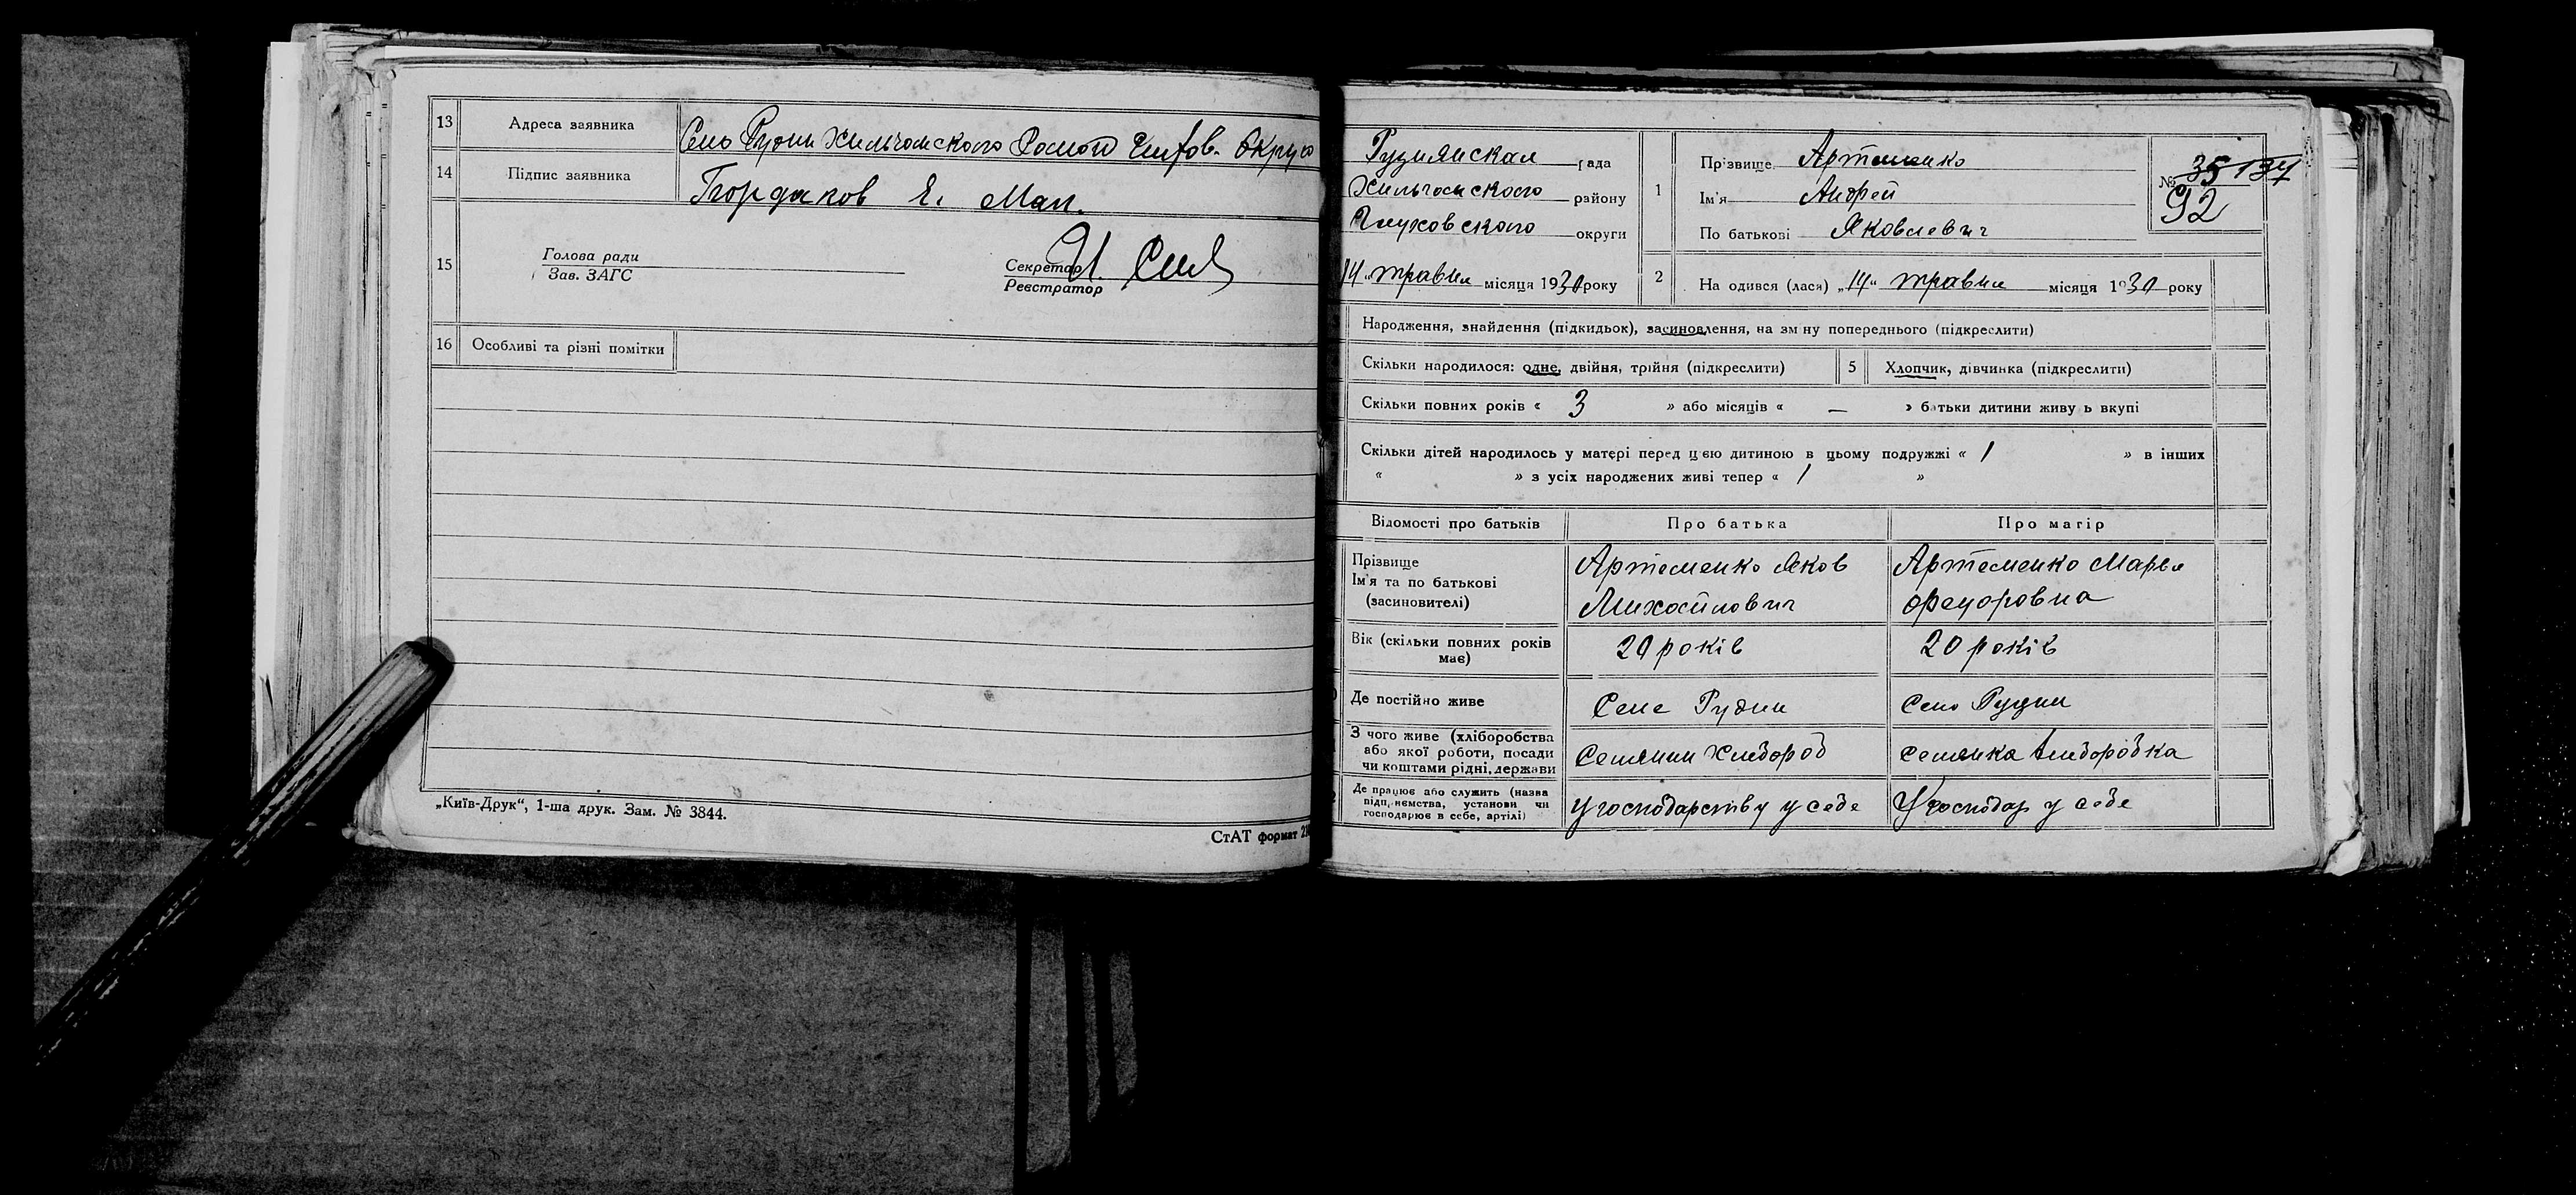 13 Адреса заявника Село Рудни Хильчанского Округ
14 Підпис заявника Е. Мак.
15 Голова ради
Зав. ЗАГС
Секретар
Реєстратор
16 Особливі та різні помітки
„Київ-Друк“, 1-ша друк. Зам. № 3844.
СтАТ формат
Рудиянская рада
Хильчанского району
Глуховского округи
14 „травня місяця 1930 року
1 Прізвище Артеменко
Ім'я Андрей
По батькові Яковлевич
№ 35 137
92
2 На одився (лася) „14“ травня місяця 1930 року
Народження, знайдення (підкидьок), засиновлення, на зміну попереднього (підкреслити)
Скільки народилося: одне, двійня, трійня (підкреслити) 5 Хлопчик, дівчинка (підкреслити)
Скільки повних років « 3 » або місяців « — » батьки дитини живу ь вкупі
Скільки дітей народилось у матері перед цею дитиною в цьому подружжі « 1 » в інших
« » з усіх народжених живі тепер « 1 »
Відомості про батьків Про батька Про матір
Прізвище
Ім'я та по батькові
(засиновителі)
Артеменко Яков
Михайлович
Артеменко Марья
Федоровна
Вік (скільки повних років
має)
20 років 20 років
Де постійно живе Селе Рудни Село Рудни
З чого живе (хліборобства
або якої роботи, посади
чи коштами рідні, держави
Селянин Хлебороб Селянка
Де працює або служить (назва
підприємства, установи чи
господарює в себе, артілі)
У господарству у себе У господар у себе